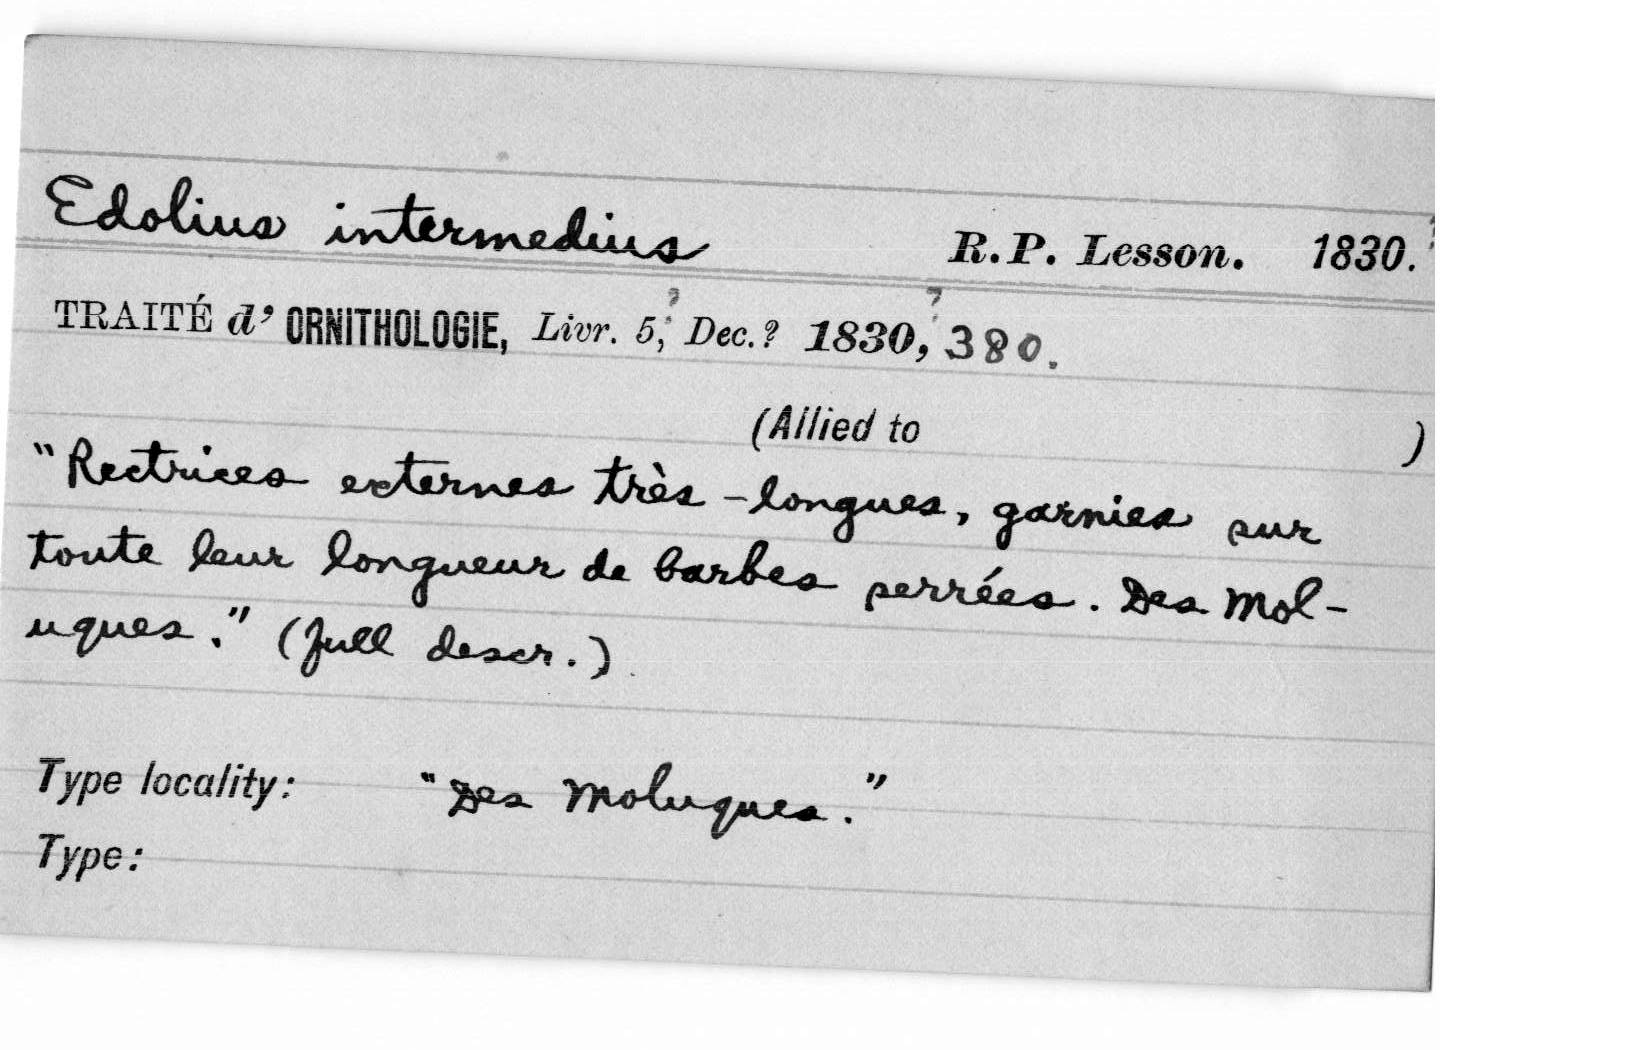 Edolius intermedius R.P. Lesson. 1830.?
TRAITÉ d' ORNITHOLOGIE, Livr. 5,? Dec.? 1830,? 380.
(Allied to )
"Rectrices externes très-longues, garnies sur
toute leur longueur de barbes serrées. Des Mol-
uques." (full descr.)
Type locality: "Des Moluques."
Type: